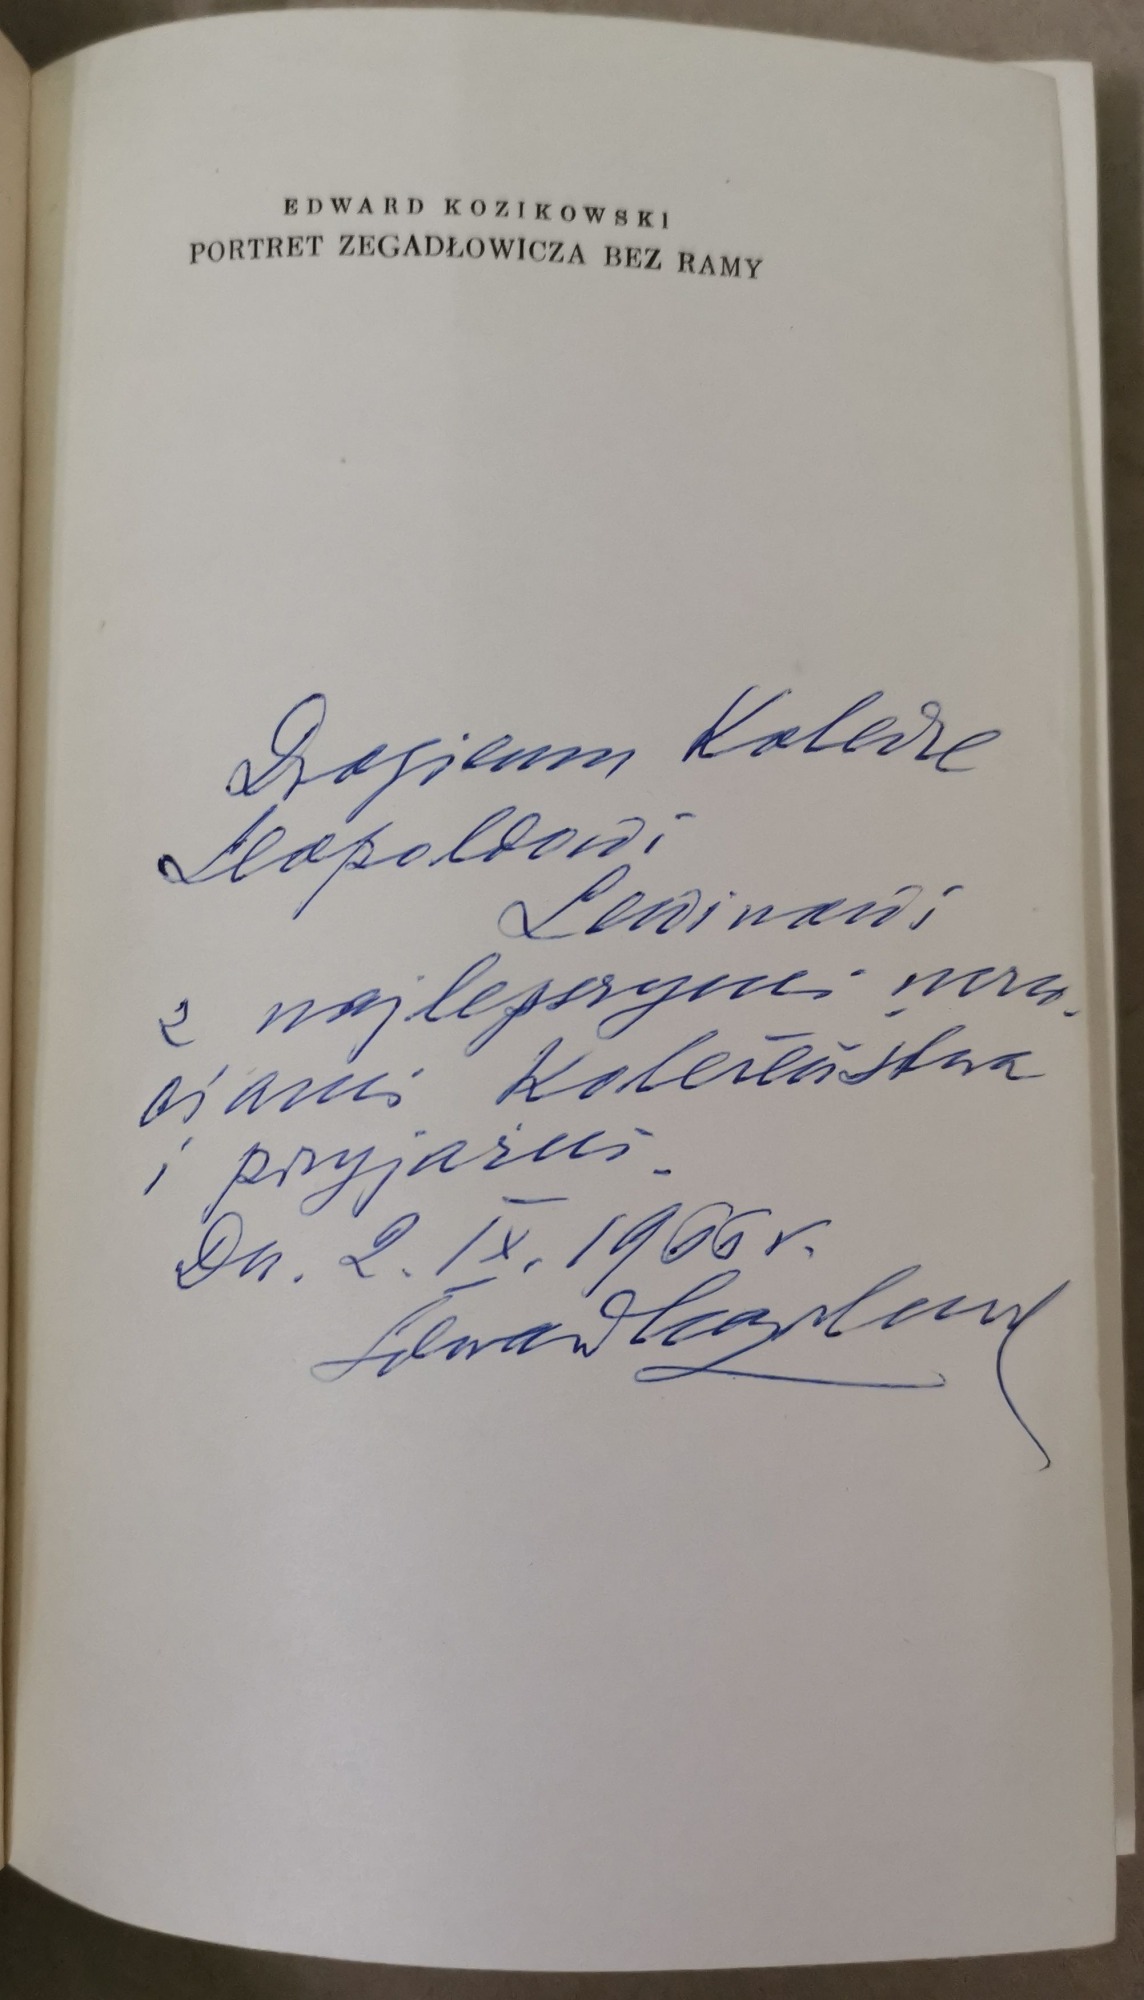 EDWARD KOZIKOWSKI
PORTRET ZEGADŁOWICZA BEZ RAMY
Drogiemu Koledze
Leopoldowi
Lewinowi
z najlepszymi uczu-
ciami Koleżeństwa
i przyjaźni.
Dn. 2. IX. 1966 r.
Edward Kozikowski